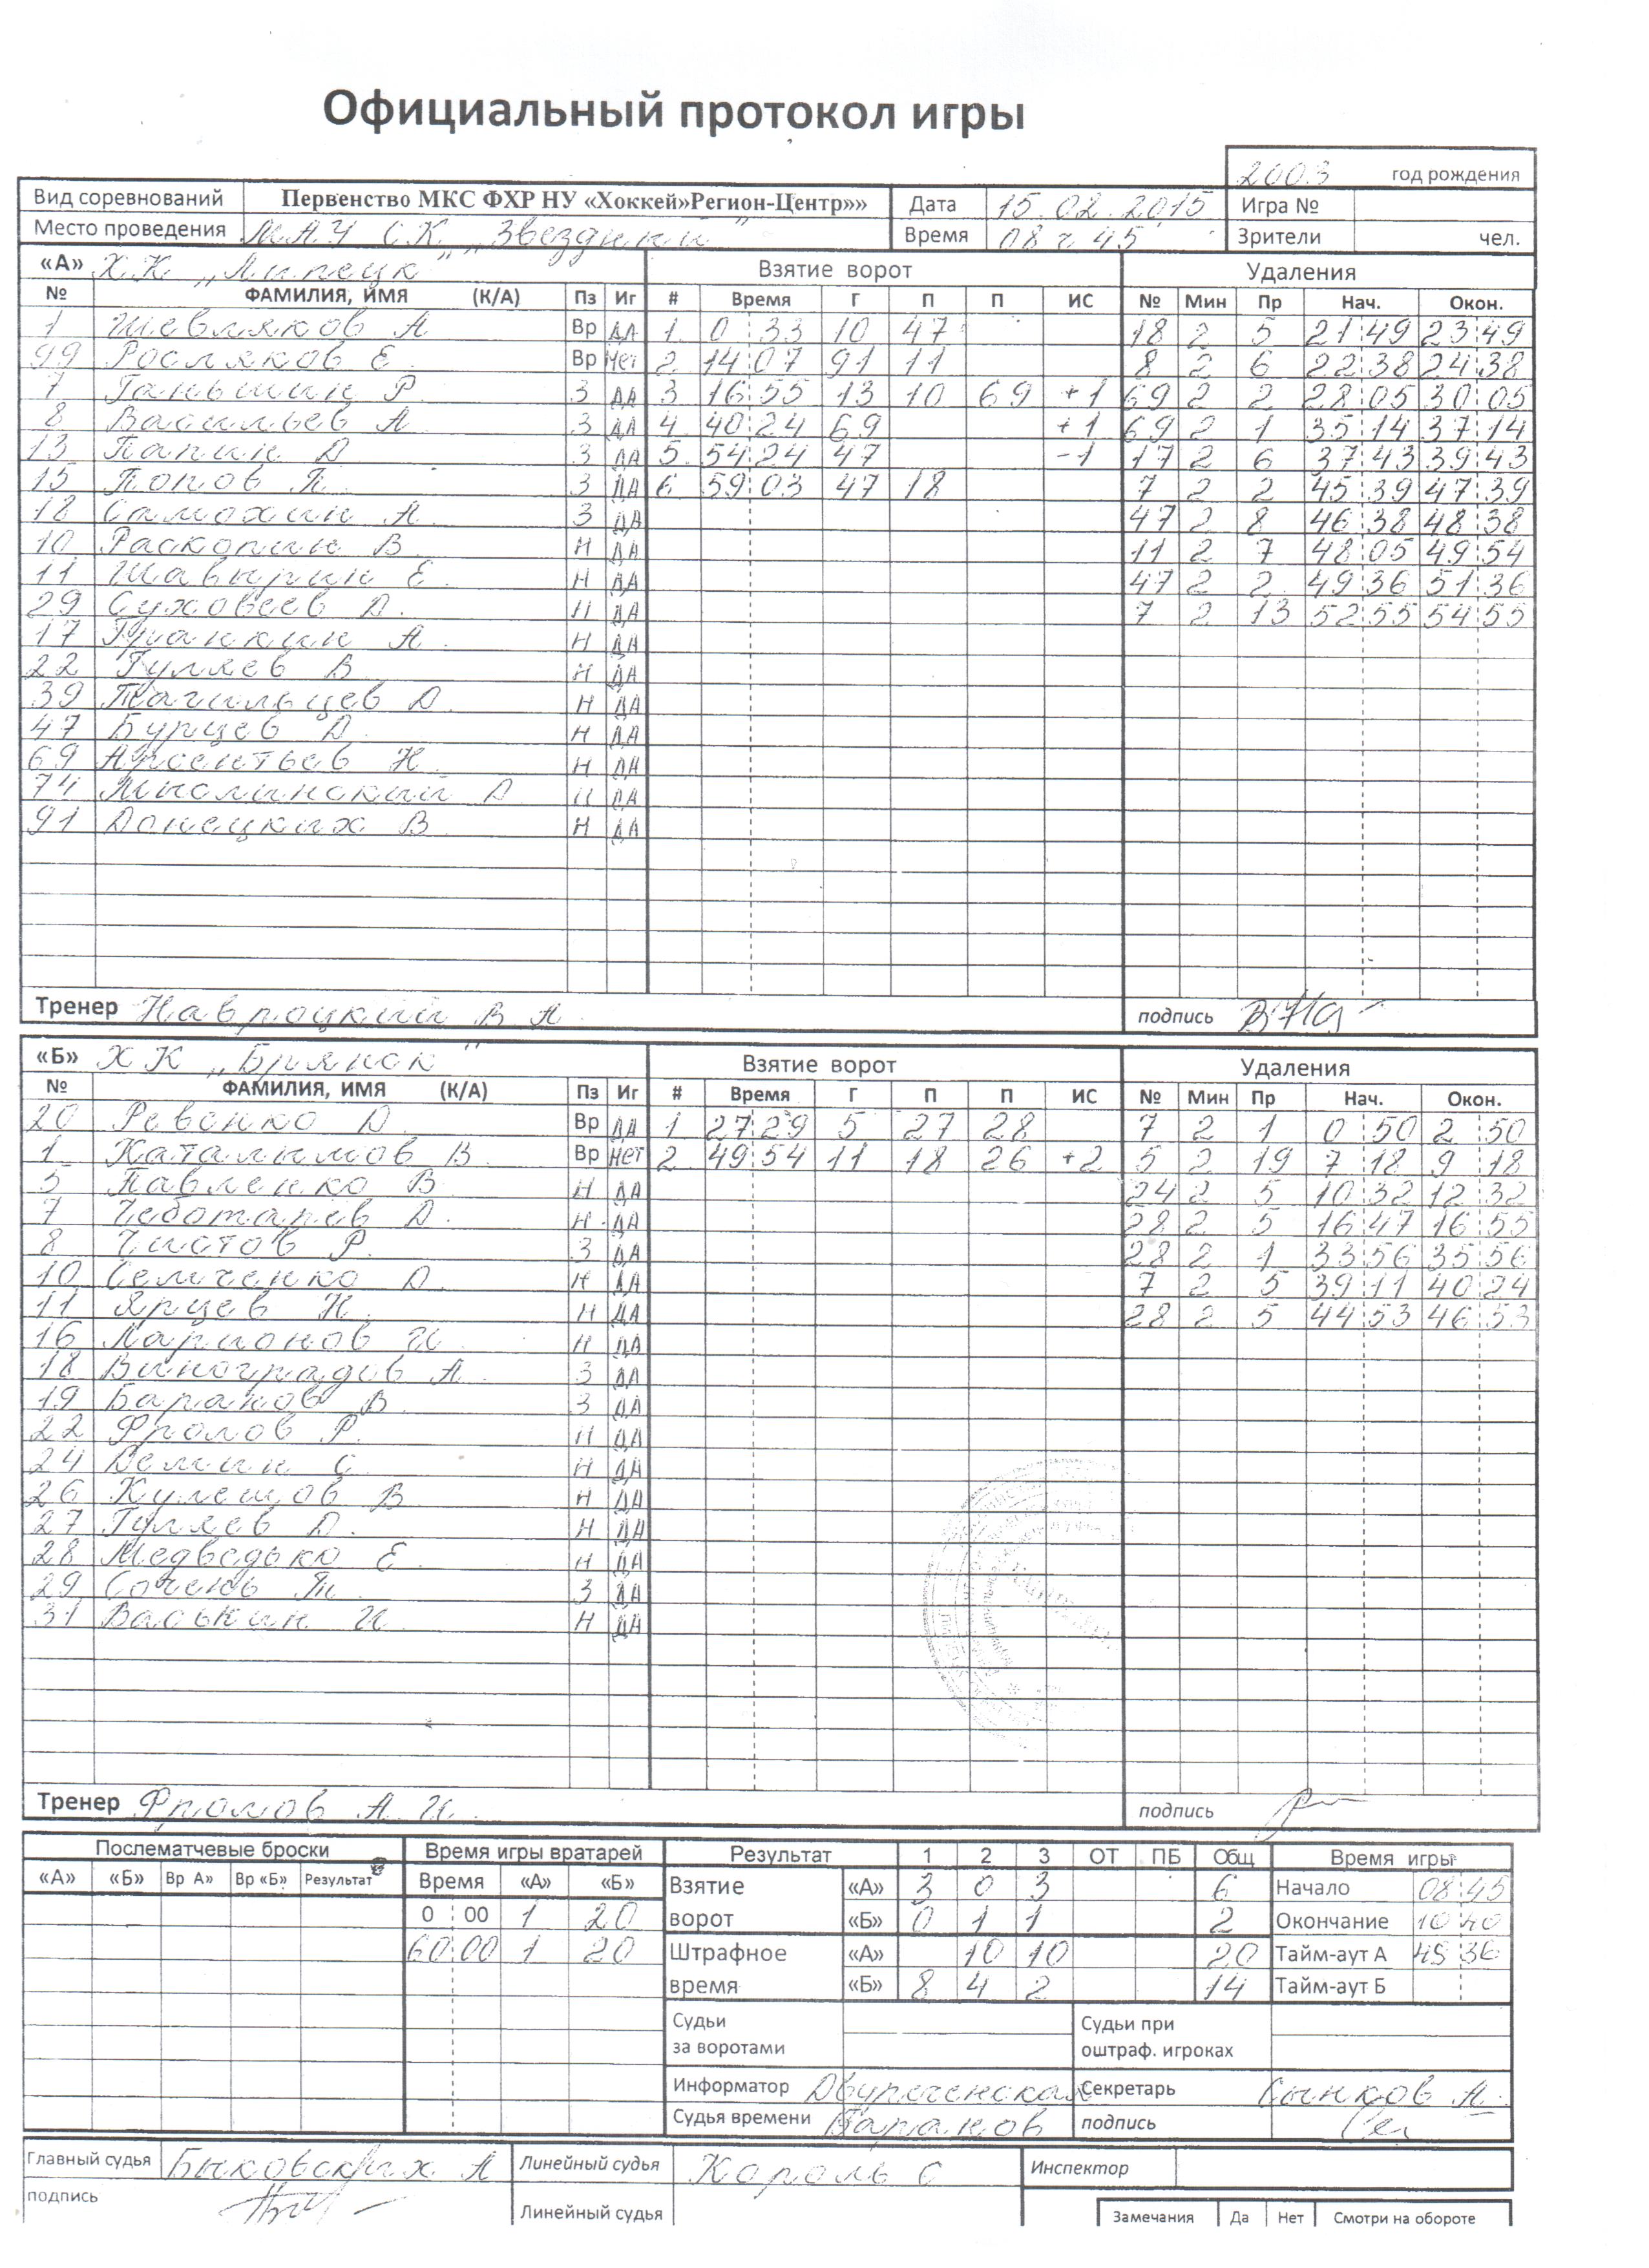 Официальный протокол игры
2003 год рождения
Вид соревнований Первенство МКС ФХР НУ «Хоккей»Регион-Центр»» Дата 15.02.2015 Игра №
Место проведения МАУ СК „Звездный" Время 08ч 45 Зрители чел.
«А» ХК „Липецк" Взятие ворот Удаления
№ ФАМИЛИЯ, ИМЯ (К/А) Пз Иг # Время Г П П ИС № Мин Пр Нач. Окон.
1 Шевляков А Вр ДА 1 0 33 10 47 18 2 5 21 49 23 49
99 Росляков Е Вр Нет 2 14 07 91 11 8 2 6 22 38 24 38
7 Ганьшин Р З ДА 3 16 55 13 10 69 +1 69 2 2 28 05 30 05
8 Васильев А З ДА 4 40 24 69 +1 69 2 1 35 14 37 14
13 Папин D З ДА 5 54 24 47 -1 17 2 6 37 43 39 43
15 Попов П З ДА 6 59 03 47 18 7 2 2 45 39 47 39
18 Самохин А З ДА 47 2 8 46 38 48 38
10 Раскопин В Н ДА 11 2 7 48 05 49 54
11 Шавырин Е Н ДА 47 2 2 49 36 51 36
29 Суховеев D. Н ДА 7 2 13 52 55 54 55
17 А Н ДА
22 Гуляев В Н ДА
39 D. Н ДА
47 Бурцев D. Н ДА
69 Арсентьев Н. Н ДА
74 Мыслинский D Н ДА
91 Донецких В Н ДА
Тренер Навроцкий В А подпись
«Б» ХК „Брянск" Взятие ворот Удаления
№ ФАМИЛИЯ, ИМЯ (К/А) Пз Иг # Время Г П П ИС № Мин Пр Нач. Окон.
20 Ревенко D. Вр ДА 1 27 29 5 27 28 7 2 1 0 50 2 50
1 Каталымов В Вр НЕТ 2 49 54 11 18 26 +2 5 2 19 7 18 9 18
5 Павленко В Н ДА 24 2 5 10 32 12 32
7 Чеботарев D. Н ДА 28 2 5 16 47 16 55
8 Чистов Р. З ДА 28 2 1 33 56 35 56
10 Семченко D. Н ДА 7 2 5 39 11 40 24
11 Ярцев Н. Н ДА 28 2 5 44 53 46 53
16 Ларионов И Н ДА
18 Виноградов А З ДА
19 Баранов В З ДА
22 Фролов Р. Н ДА
24 Демин С Н ДА
26 Кулешов В Н ДА
27 Гуляев D. Н ДА
28 Медведько Е. Н ДА
29 Сочень З ДА
31 Васькин И Н ДА
Тренер Фролов А И. подпись
Послематчевые броски Время игры вратарей Результат 1 2 3 ОТ ПБ Общ Время игры
«А» «Б» Вр А» Вр «Б» Результат Время «А» «Б» Взятие «А» 3 0 3 6 Начало 08 45
0 00 1 20 ворот «Б» 0 1 1 2 Окончание 10 40
60 00 1 20 Штрафное «А» 10 10 20 Тайм-аут А 45 36
время «Б» 8 4 2 14 Тайм-аут Б
Судьи Судьи при
за воротами оштраф. игроках
Информатор Двуреченская Секретарь Сынков А.
Судья времени Баранов подпись
Главный судья Быковских А Линейный судья Король С Инспектор
подпись Линейный судья Замечания Да Нет Смотри на обороте